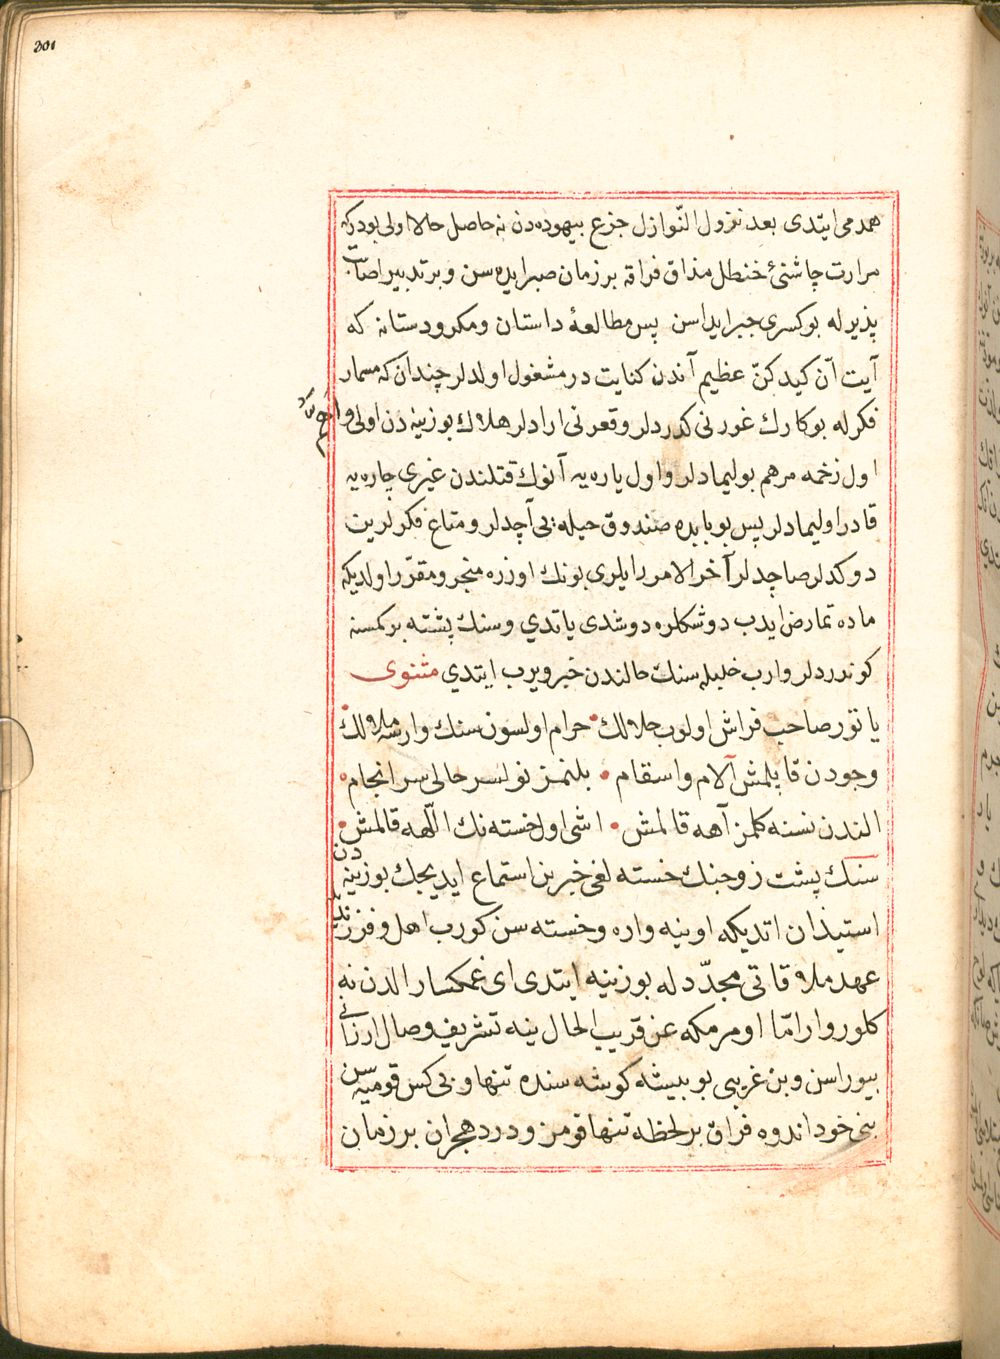 201
همدمی ایتدی بعد نزول النّوازل جزع بیهوده‌دن نه حاصل حالا اولی بودرکه
مرارت چاشنئ خنطل مذاق فراقه بر زمان صبر ایده‌سن و بر تدبیر اصابت
پذیر له بو کسری جبر ایداسن پس مطالعۀ داستان و مکر و دستانه که
آیت انّ کیدکنّ عظیم آندن کنایت در مشغول اولدلر چندان که مسمار
فکرله بو کارك غورنی کدردلر و قعرنی ارادلر هلاك بوزینه دن اولی و
اول زخمه مرهم بولیمادلر و اول یاره‌یه آنوك قتلندن غیری چاره‌یه
قادر اولیمادلر پس بو بابده صندوق حیله‌یی آچدلر و متاع فکرلرین
دوکدلر صاچدلر آخر الامر رایلری بونك اوزره منجر و مقرّر اولدیکه
ماده تمارض ایدب دوشکلره دوشدی یاتدی و سنك پشته بر کمسنه
کوندردلر وارب خلیله سنك حالندن خبر ویرب ایتدی مثنوی
یاتور صاحب فراش اولوب حلالك حرام اولسون سنك وارسه ملالك
وجودن قاپلمش آلام و اسقام بلنمز نولسر حالی سرانجام
الندن نسنه کلمز آهه قالمش اشی اول خسته‌نك اللّهه قالمش
سنك پشت زوجنك خسته‌لغی خبرین استماع ایدیجك بوزینه دن
استیذان اتدیکه اوینه واره و خسته‌سن کورب اهل و فرزندیله
عهد ملاقاتی مجدّد له بوزینه ایتدی ای غمکسار الدن نه
کلور وار امّا اومرمکه عن قریب الحال ینه تشریف وصال ارزانی
بیوراسن و بن غریبی بو بیشه کوشه‌سنده تنها و بی کس قومیه‌سن
بنی خود اندوه فراق بر لحظه تنها قومز و درد هجران بر زمان